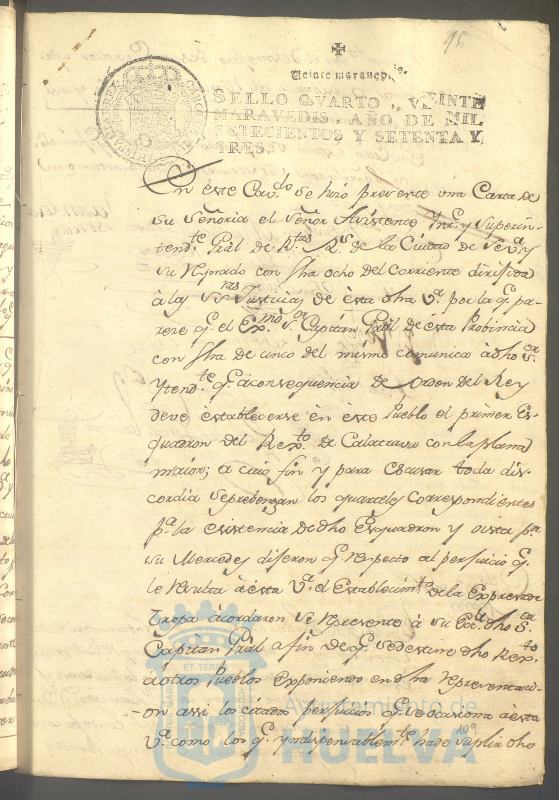 15
Veinte maravedis.
SELLO QVARTO, VEINTE
MARAVEDIS, AÑO DE MIL
SETECIENTOS Y SETENTA Y
TRES.
En este Cav.do se hizo presente una Carta de
su Señoria el Señor Asistente Yn.te y Superin-
tend.te Gral de R.tas R.s de la Ciudad de Sev.a y
su Reynado con fha ocho del corriente dirijida
à las S.ras Justicias de èsta dha V.a por la q.e pa-
rece q.e el Ex.mo S.or Capitàn Gral de èsta Probincia
con fha de cinco del mismo comunica àdho S.or
Ytend.te q.e àconsequencia de orden del Rey
deve establecerse èn èste Pueblo el primer Es-
quadron del Rex.to de Calatrava con la plana
maior; a cuio fin y para escusar toda dis-
cordia seprebengan los quarteles correspondientes
p.a la existencia de dho Esquadron y vista p.r
su Mercedes dijeron q.e respecto al perjuicio q.e
le resulta àèsta V.a el Establecim.to de la Expresada
tropa àcordaron se represente à su Exc.a dho S.or
Capitan Gral a fin de q.e sedestine dho Rex.to
à otros Pueblos Exponiendo en dha representaci-
on assi los citados perjuicios q.e se ocasiona àèsta
V.a como los q.e yndispensablem.te hade suplir dho
Ayuntamiento de
HUELVA